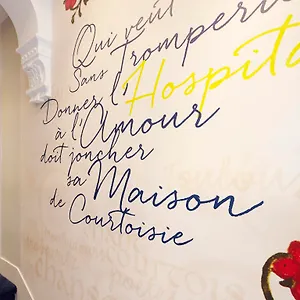 Qui veut
Sans Tromperie
Donner l'Hospita
à l'Amour
doit joncher
sa Maison
de Courtoisie